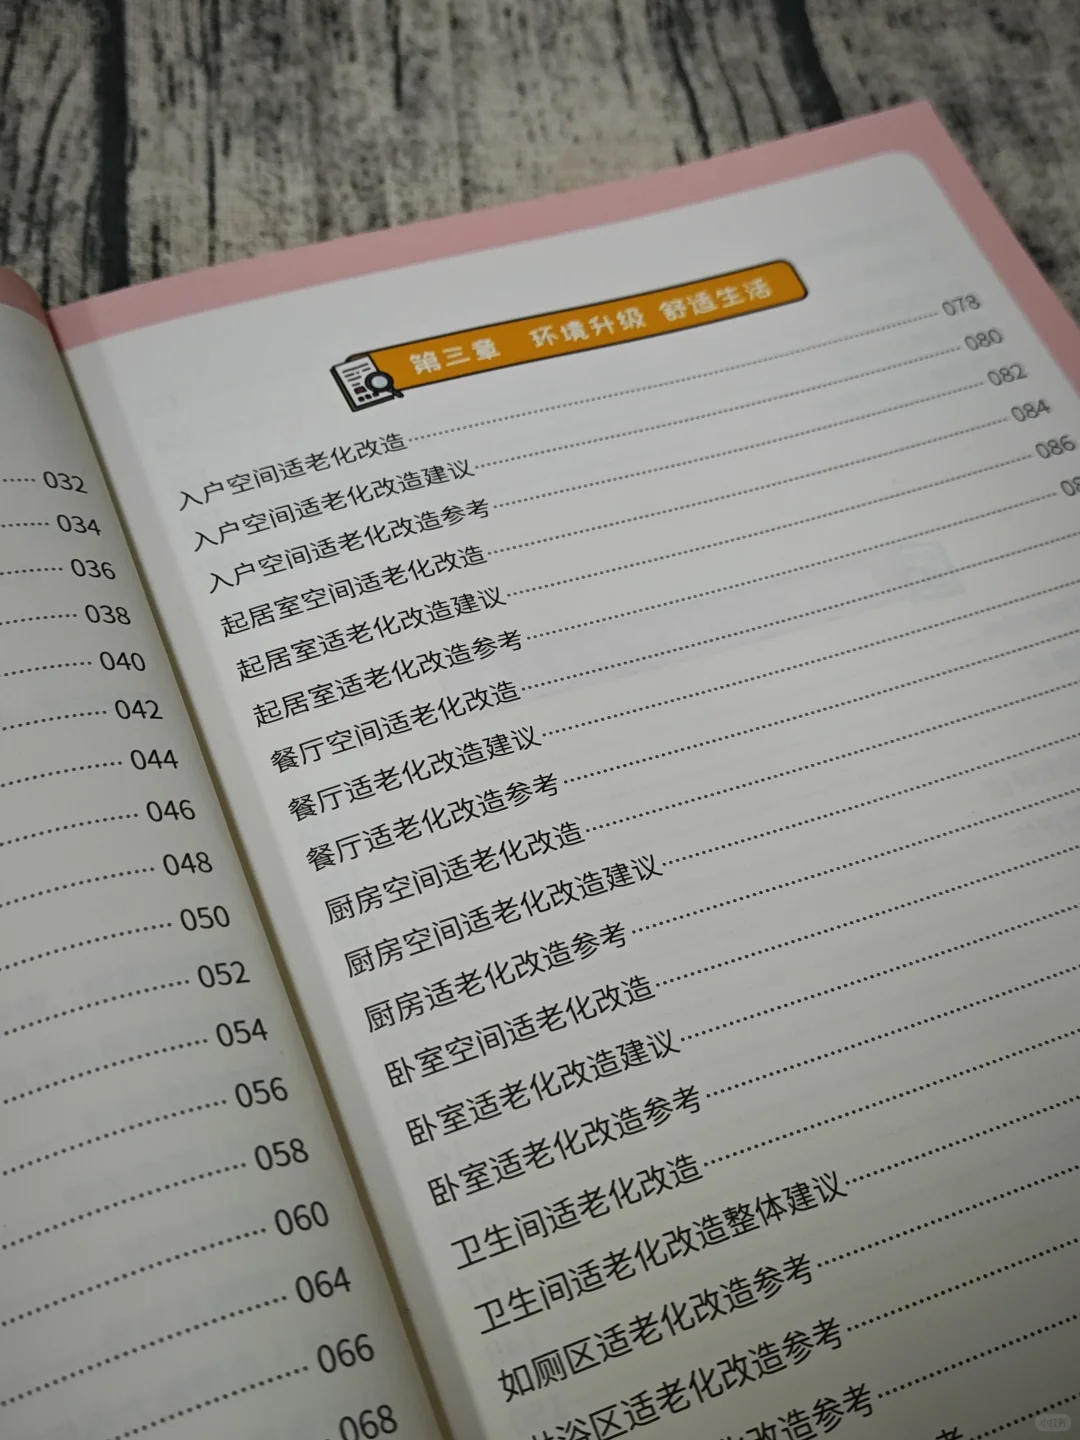 032
034
036
038
040
042
044
046
048
050
052
054
056
058
060
064
066
068
第三章 环境升级 舒适生活
入户空间适老化改造 078
入户空间适老化改造建议 080
入户空间适老化改造参考 082
起居室空间适老化改造 084
起居室适老化改造建议 086
起居室适老化改造参考
餐厅空间适老化改造
餐厅适老化改造建议
餐厅适老化改造参考
厨房空间适老化改造
厨房空间适老化改造建议
厨房适老化改造参考
卧室空间适老化改造
卧室适老化改造建议
卧室适老化改造参考
卫生间适老化改造
卫生间适老化改造整体建议
如厕区适老化改造参考
浴区适老化改造参考
改造参考
小红书